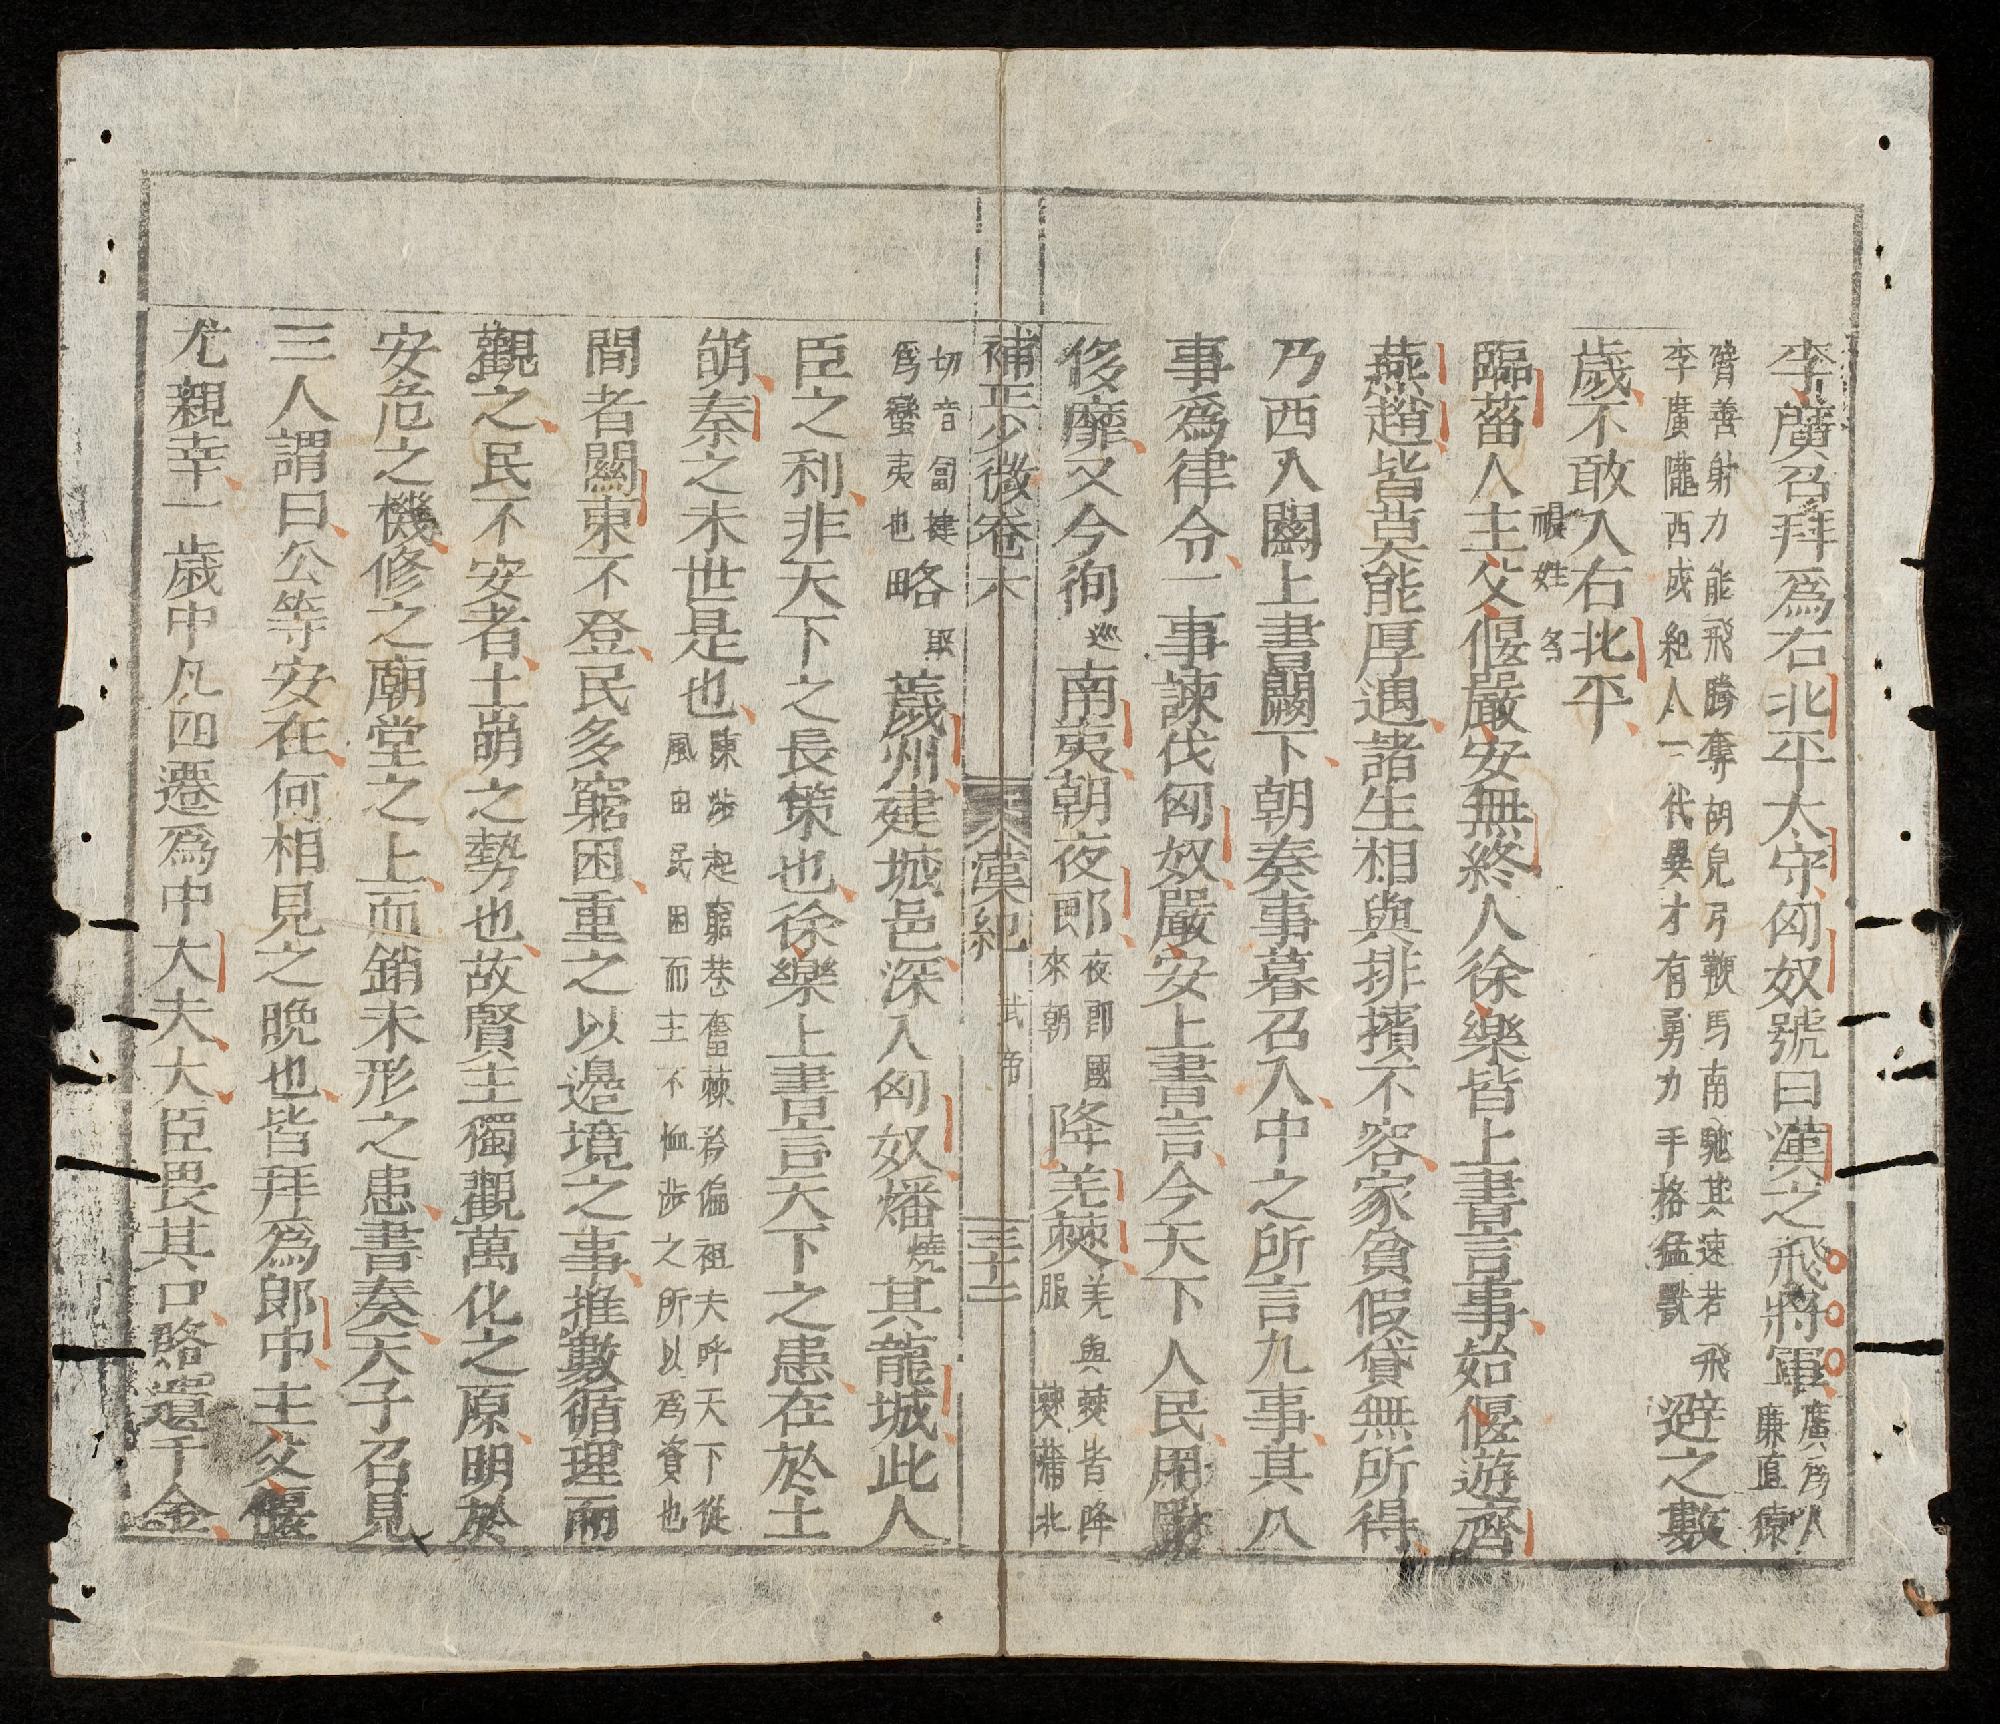 李廣召拜爲右北平太守匈奴號曰漢之飛將軍廣爲人廉直猿
臂善射力能飛騰奪胡兒弓鞭馬南馳其速若飛
李廣隴西成紀人一代異才有勇力手格猛獸
避之數
歲不敢入右北平
複姓 名
臨菑人主父偃嚴安無終人徐樂皆上書言事始偃遊齊
燕趙皆莫能厚遇諸生相與排擯不容家貧假貸無所得
乃西入關上書闕下朝奏事暮召入中之所言九事其八
事爲律令一事諫伐匈奴嚴安上書言今天下人民用財
侈靡又今徇巡南夷朝夜郎夜郎國來朝降羌僰羌與僰皆降服僰蒲北
補正少微卷六 漢紀 武帝 三十二
切音匐揵爲蠻夷也略取薉州建城邑深入匈奴燔燒其龍城此人
臣之利非天下之長策也徐樂上書言天下之患在於土
崩秦之末世是也陳涉起窮巷奮棘矜偏袒大呼天下從
風由民困而主不恤涉之所以爲資也
間者關東不登民多窮困重之以邊境之事推數循理而
觀之民不安者土崩之勢也故賢主獨觀萬化之原明於
安危之機修之廟堂之上而銷未形之患書奏天子召見
三人謂曰公等安在何相見之晚也皆拜爲郎中主父偃
尤親幸一歲中凡四遷爲中大夫大臣畏其口賂遺千金